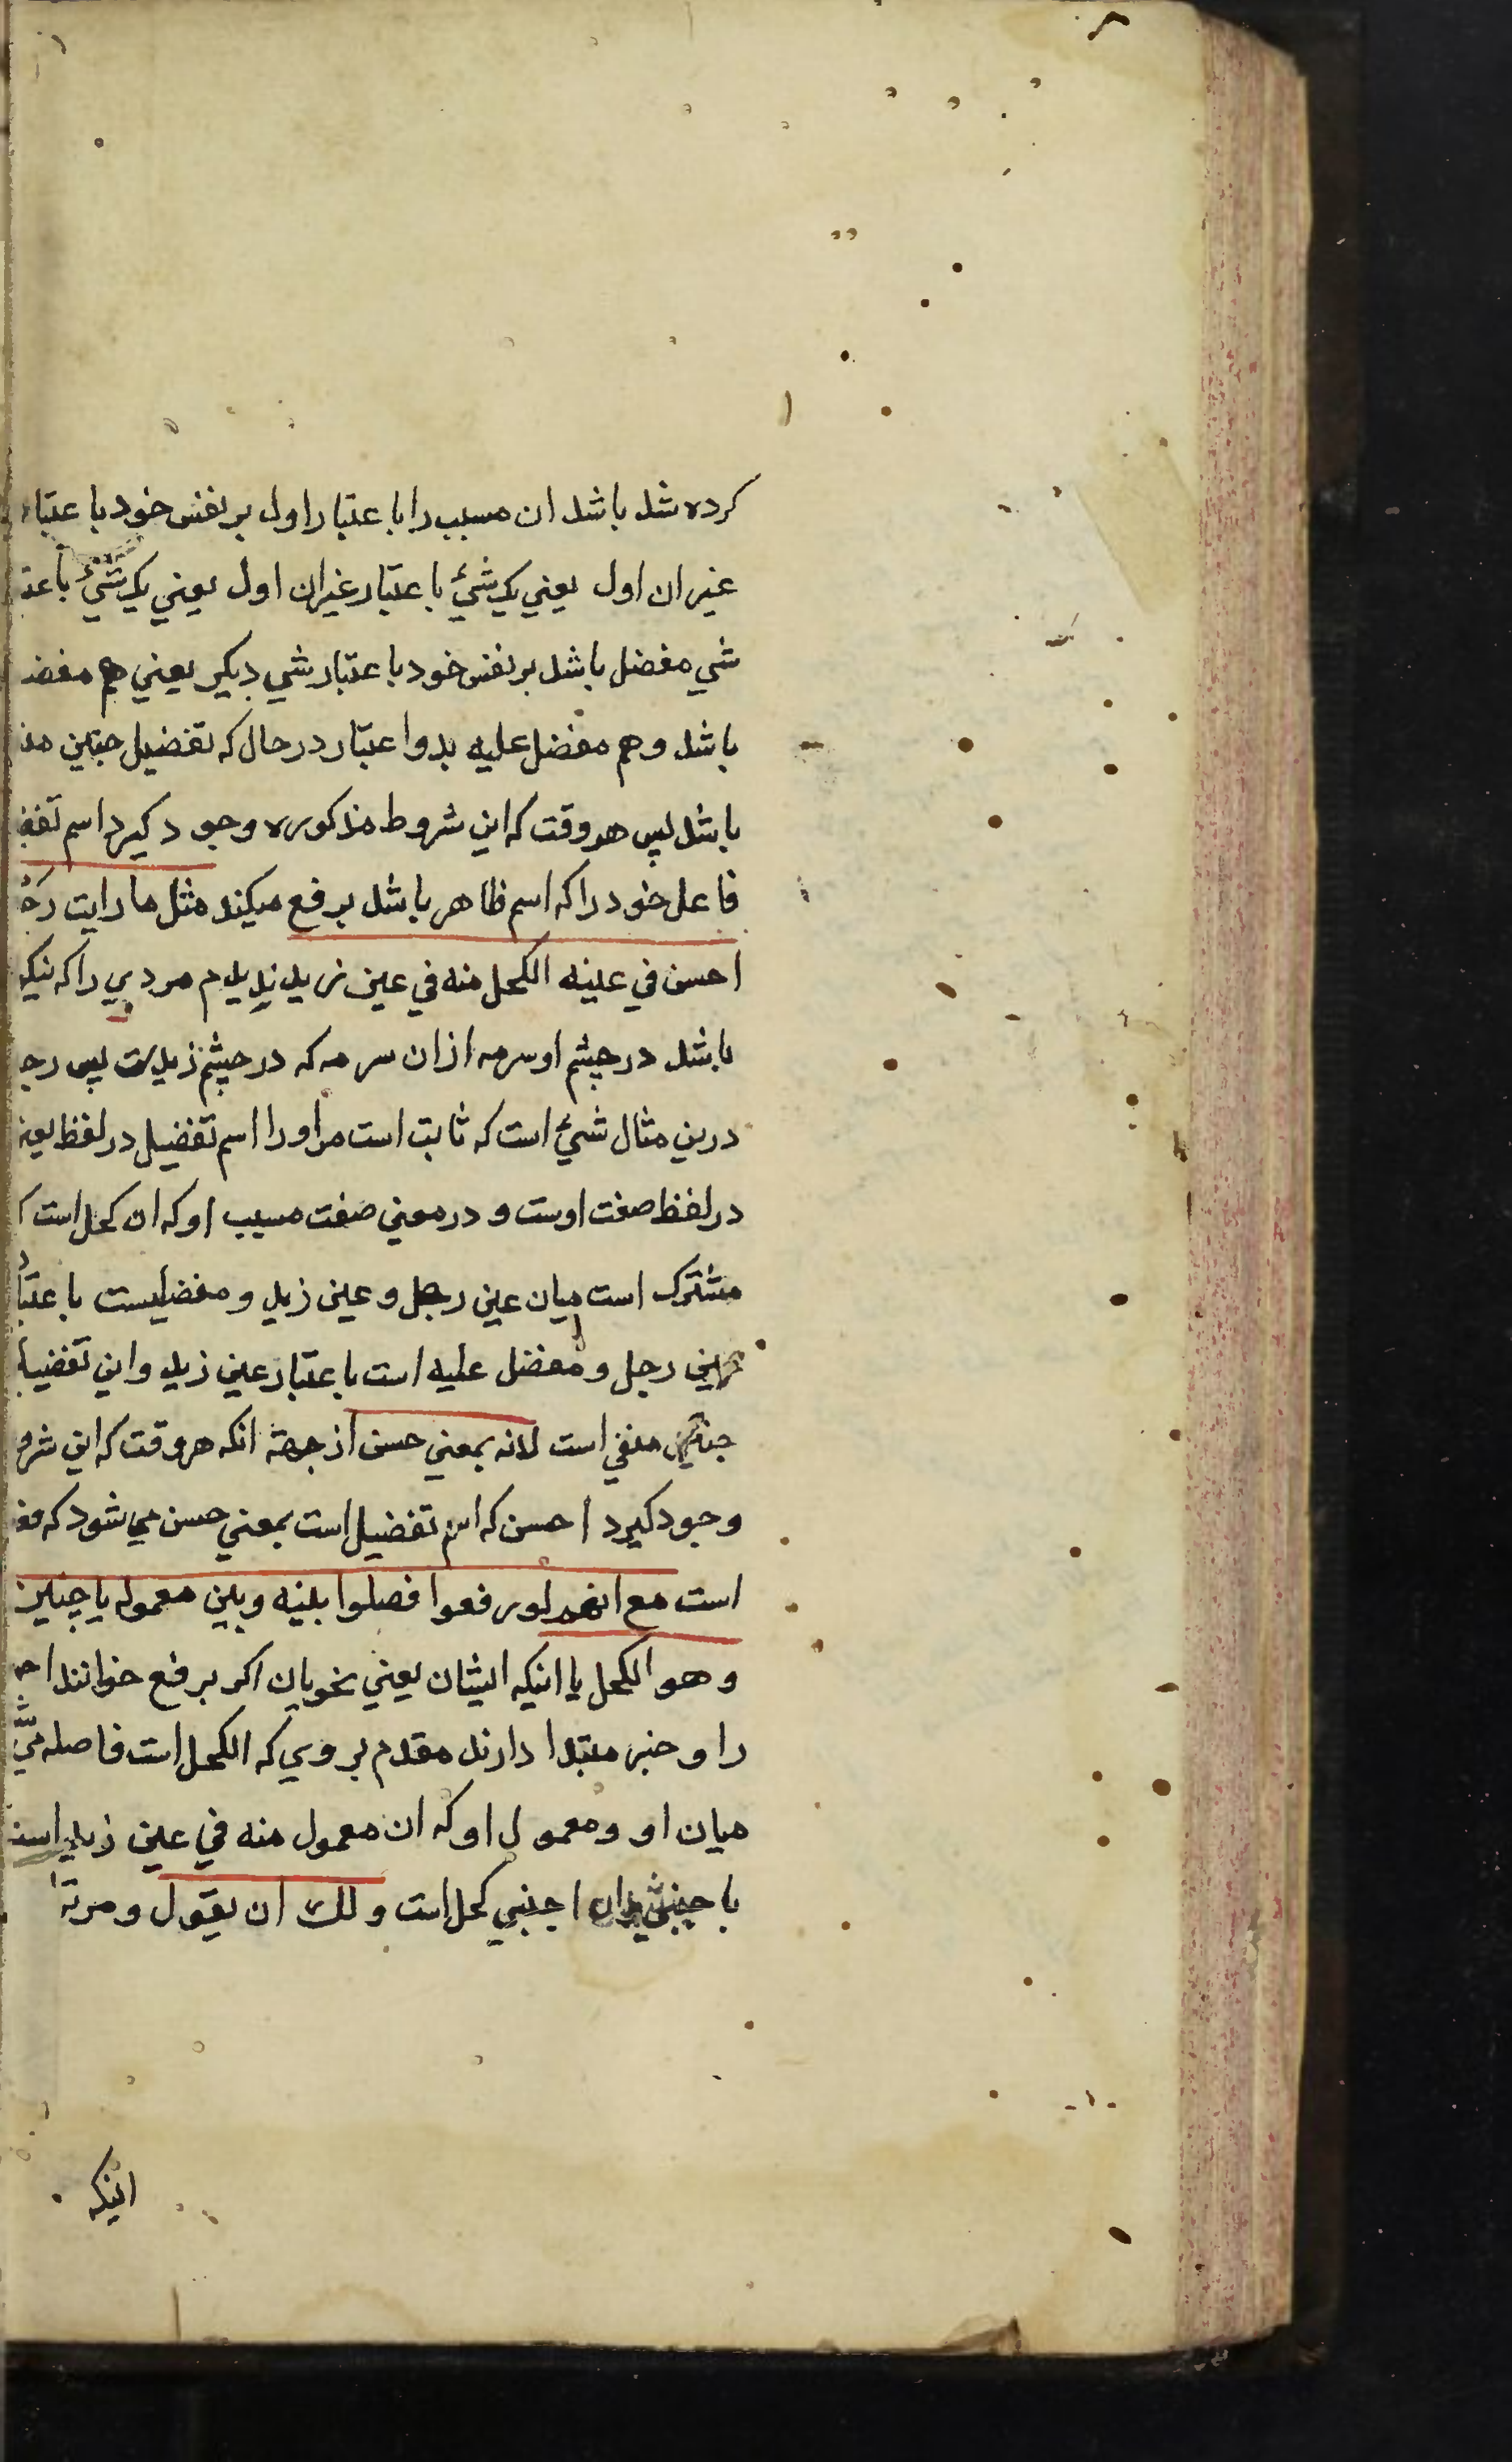 کرده شد باشد ان مسبب را با عتبار اول بر نفس خود با عتبار
غیر ان اول یعنی یک شئ با عتبار غیران اول یعنی یک شئ باعتـ
شی مفضل باشد بر نفس خود با عتبار شی دیکر یعنی هم مفضـ
باشد و هم مفضل علیه بدو اعتبار در حال که تفضیل جنین منـ
باشد پس هر وقت که این شروط مذکوره وجود کیرد اسم تفضـ
فاعل خود را که اسم ظاهر باشد بر فع میکند مثل ما رایت رجـ
احسن فی عینه الکحل منه فی عین زید ندیدم مردی را که نیکو
باشد در چشم او سرمه ازان سرمه که در چشم زیدست پس رجـ
درین مثال شئ است که ثابت است مراورا اسم تفضیل در لفظ یعنـ
در لفظ صفت اوست و در معنی صفت مسبب او که ان کحل است کـ
مشترک است میان عین رجل و عین زید و مفضلیست با عتبار
عین رجل و مفضل علیه است با عتبار عین زید و این تفضیل
جنین منفی است لانه بمعنی حسن از جهة انکه هر وقت که این شرو
وجود کیرد احسن که اسم تفضیل است بمعنی حسن می شود که فعـ
است مع انهم لو رفعوا فصلوا بینه و بین معموله با جنبی
و هو الکحل یا اینکه ایشان یعنی نحویان اکر بر فع خوانند احـ
را و خبر مبتدا دارند مقدم بر وی که الکحل است فاصله می
میان او و معمول او که ان معمول منه فی عین زید است
با جنبی و ان اجنبی کحل است و لک ان یقول و مرترا
اینکه